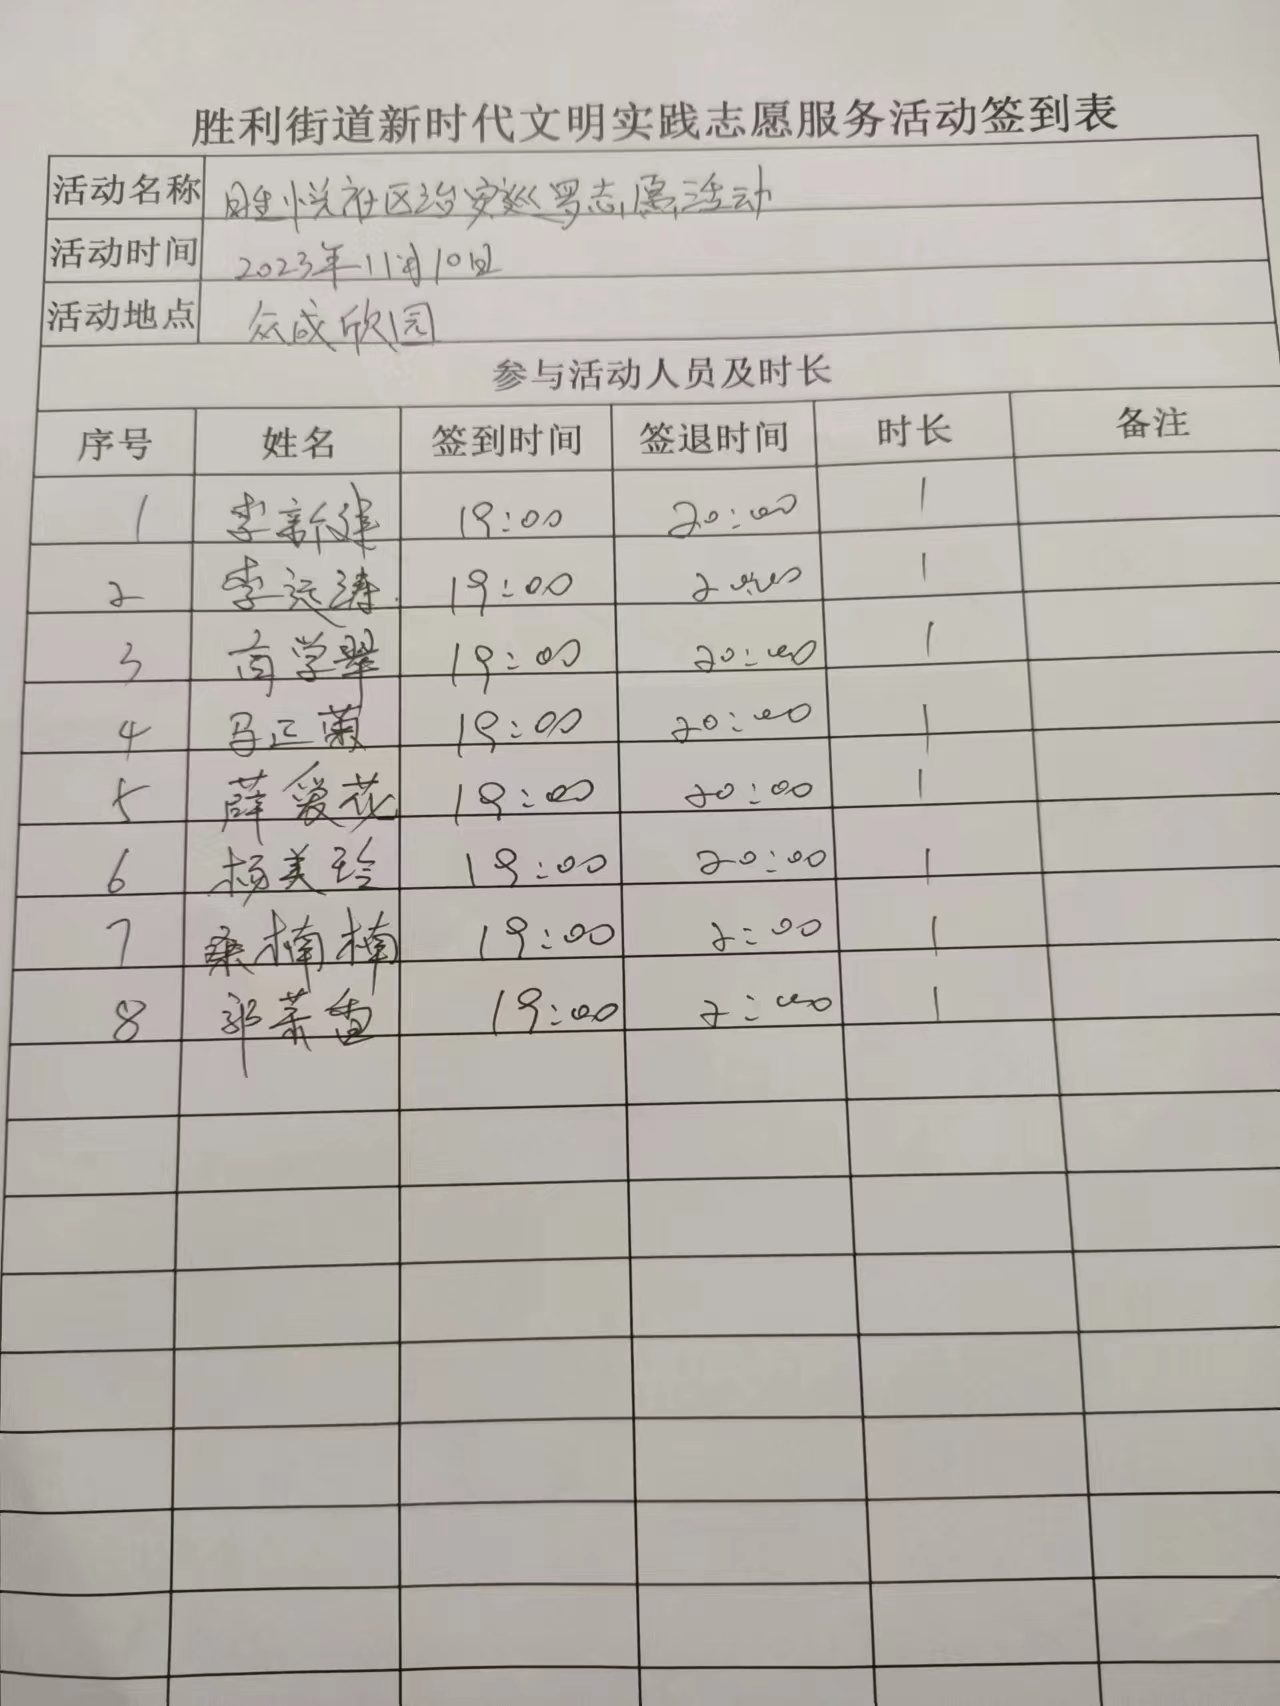 胜利街道新时代文明实践志愿服务活动签到表
活动名称 胜悦社区治安巡罗志愿活动
活动时间 2023年11月10日
活动地点 众成欣园
参与活动人员及时长
序号 姓名 签到时间 签退时间 时长 备注
1 李新建 19:00 20:00 1
2 李远涛 19:00 20:00 1
3 商学翠 19:00 20:00 1
4 马正菊 19:00 20:00 1
5 薛爱花 19:00 20:00 1
6 杨美玲 19:00 20:00 1
7 桑楠楠 19:00 2:00 1
8 郭香 19:00 2:00 1